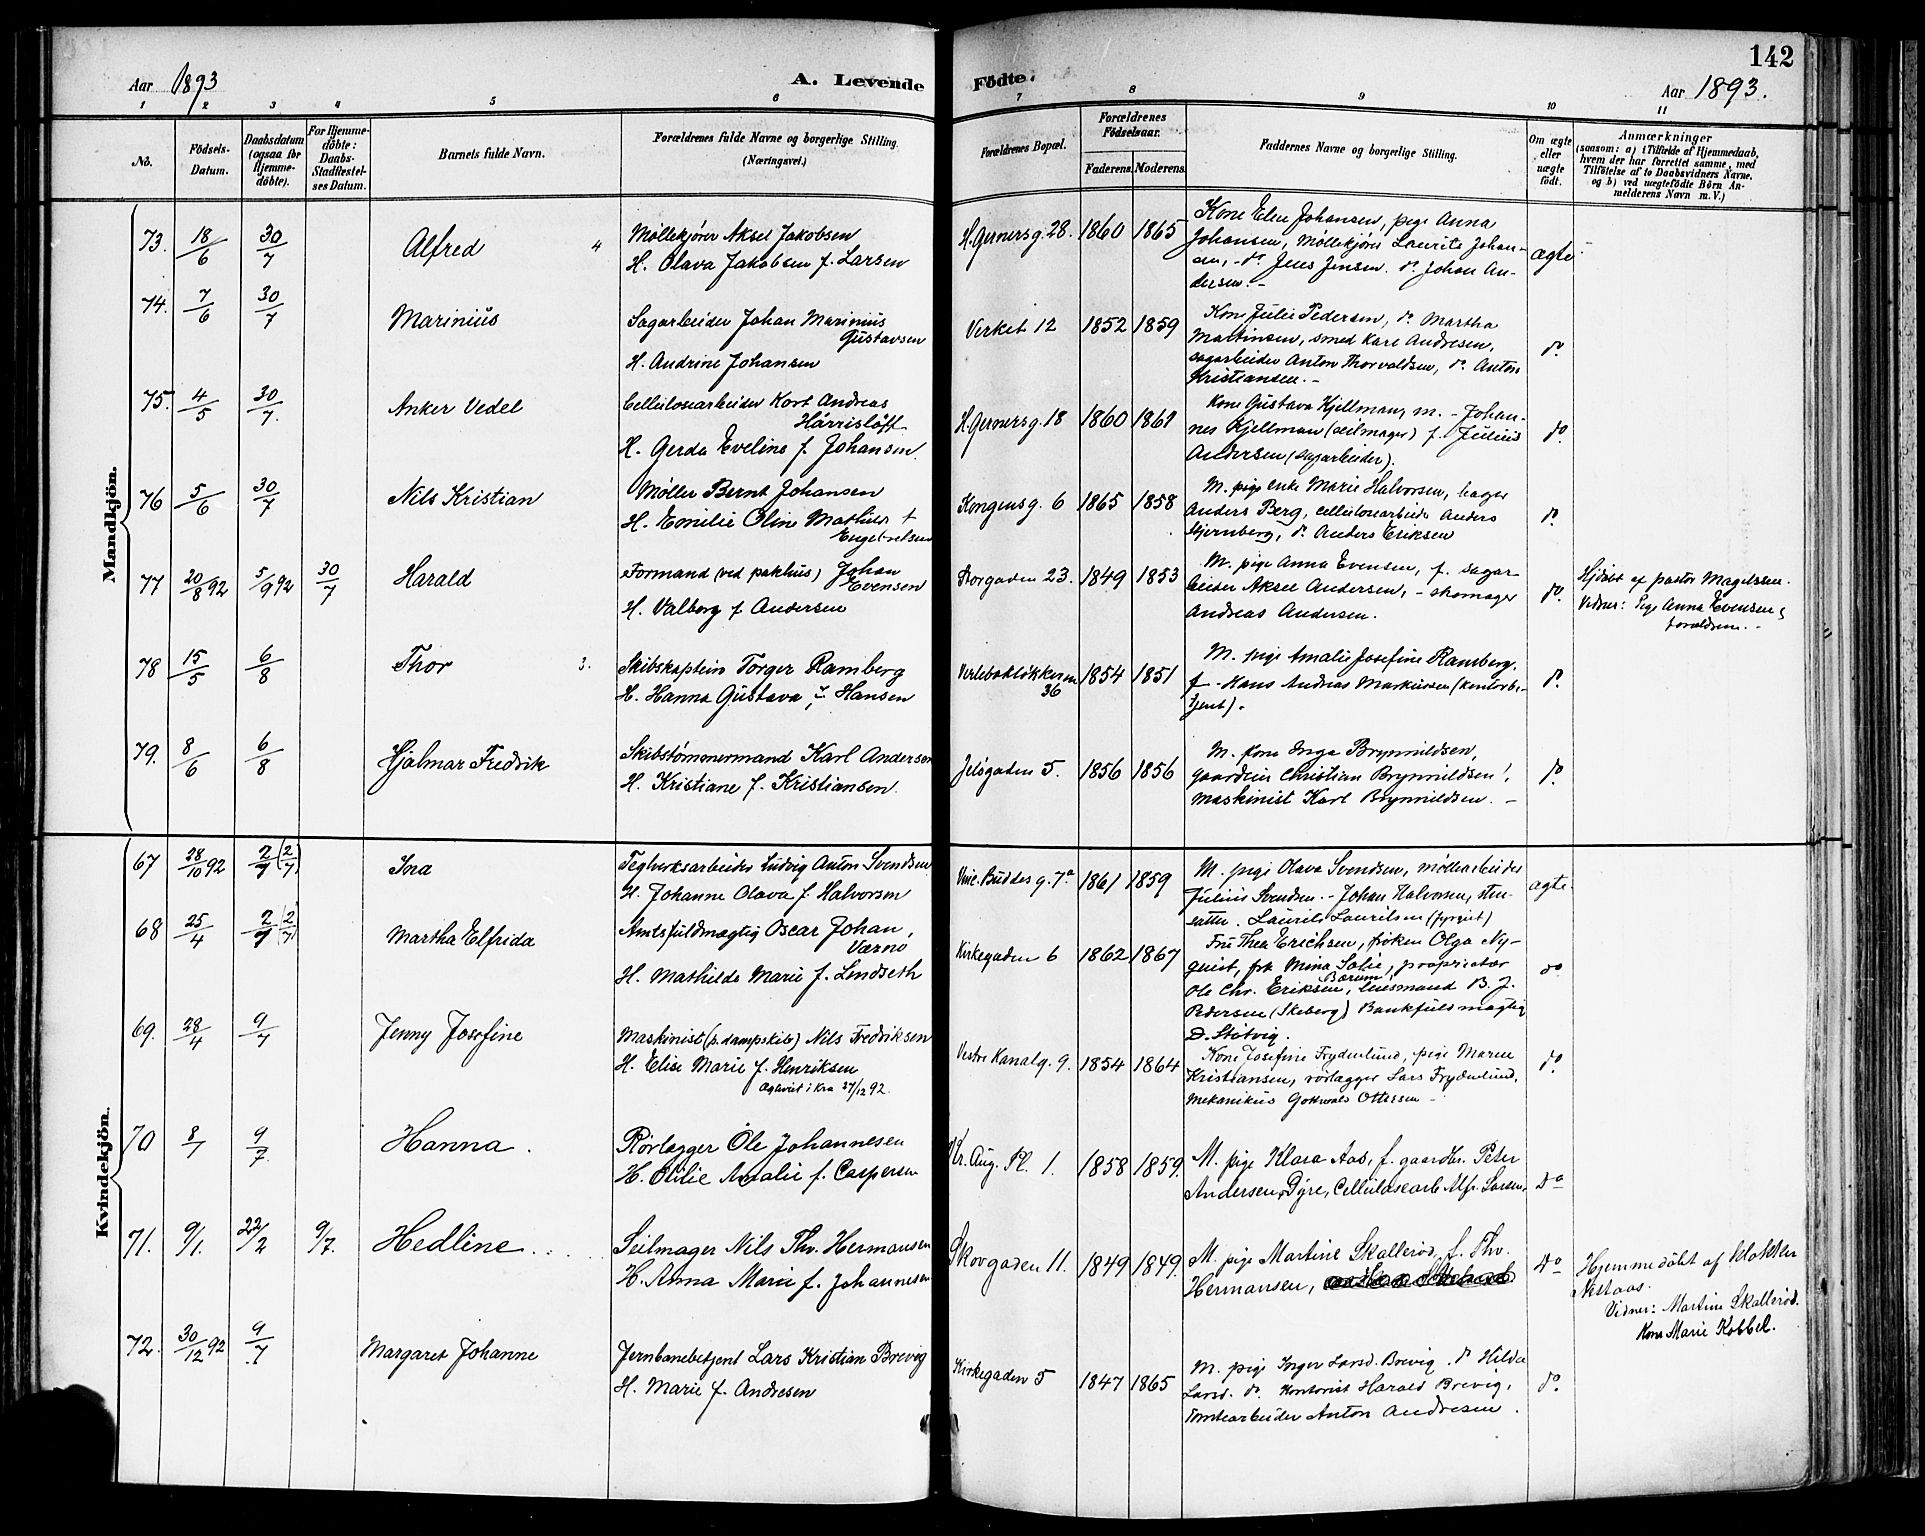 142
Aar 1893
A. Levende
Födte.
Aar 1893.
1 2 3 4 5 6 7 8 9 10 11
No.
Födsels-
Datum.
Daabsdatum
(ogsaa for
Hjemme-
döbte).
For Hjemme-
döbte:
Daabs-
Stadfæstel-
ses Datum.
Barnets fulde Navn.
Forældrenes fulde Navne og borgerlige Stilling.
(Næringsvei.)
Forældrenes Bopæl.
Forældrenes
Födselsaar.
Faderens.
Moderens.
Faddernes Navne og borgerlige Stilling.
Om ægte
eller
uægte
födt.
Anmærkninger
(saasom: a) i Tilfælde af Hjemmedaab,
hvem der har forrettet samme, med
Tilföielse af to Daabsvidners Navne,
og b) ved uægtefödte Börn An-
melderens Navn m. V.)
Mandkjön.
73. 18/6 30/7 Alfred 4
Møllekjører Aksel Jakobsen
H. Olava Jakobsen f. Larsen
H. Gernersg. 28. 1860 1865
Kone Elen Johansen, pige Anna
Johansen, Møllekjører Laurits Johan-
sen, - do Jens Jensen. do Johan An-
dersen. -
ægte
74. 7/6 30/7 Marinius
Sagarbeider Johan Marinius
Gustavsen
H. Andrine Johansen
Verket 12 1852 1859
Kone Julie Pedersen, do Martha
Martinsen, smed Karl Andresen,
sagarbeider Anton Thorvaldsen, do Anton
Kristiansen. -
do
75. 4/5 30/7. Anker Vedel
Cellulosearbeider Karl Andreas
Härrisløft
H. Gerda Eveline f. Johansen.
H. Gernersg. 18 1860 1861
Kone Gustava Kjellman, m. - Johan-
nes Kjellman (seilmager) f. Julius
Andersen (sagarbeider).
do
76 5/6 30/7 Nils Kristian
Møller Bernt Johansen
H. Emilie Oline Mathilde f
Engebretsen
Kongensg. 6 1865 1858
M. pige enke Marie Halvorsen, bager
Anders Berg, cellulosearbeider Anders
Stjernberg, do Anders Eriksen
do
77 20/8 92 5/9 92 30/7 Harald
Formand (ved pakhus) Johan
Evensen
H. Valborg f Andersen
Storgaden 23. 1849 1853
M. pige Anna Evensen, f. sagar-
beider Aksel Andersen, - skomager
Andreas Andersen.
do
Hjdøbt af pastor Magelssen.
Vidner: Pige Anna Evensen &
forældrene. -
78 15/5 6/8 Thor 3.
Skibskaptein Torger Ramberg
H. Hanna Gustava, f. Hansen
Verlebakløkkerne
36
1854 1851
M. pige Amalie Josefine Ramberg.
f - Hans Andreas Markussen (kontorbe-
tjent).
do
79. 8/6 6/8 Hjalmar Fredrik
Skibstømmermand Karl Andersen
H. Kristiane f. Kristiansen.
Jelsgaden 5. 1856 1856
M. kone Inga Brynnildsen,
gaardeier Christian Brynnildsen,
maskinist Karl Brynnildsen. -
do
Kvindekjön.
67 28/10 92 2/7 (2/7) Ina
Teglverksarbeider Ludvig Anton Svendsen
H. Johanne Olava f. Halvorsen
Vinc. Buddes g. 7a 1861 1859
M. pige Olava Svendsen, møllearbeider
Julius Svendsen. - Johan Halvorsen, sten-
sætter. Laurits Lauritsen (fyrbøt)
ægte.
68 25/4 2/7 (2/7) Martha Elfrida
Amtsfuldmægtig Oscar Johan
Værno
H. Mathilde Marie f. Lindseth
Kirkegaden 6 1862 1867
Fru Thea Erichsen, frøken Olga Ny-
quist, frk Mina Solie, proprietær
Ole Chr. Eriksen Bærum, lensmand B. J.
Pedersen (Skeberg) Bankfuldmægtig
D. Stitvig.
do
69. 28/4 9/7 Jenny Josefine
Maskinist (p. dampskib) Nils Fredriksen
H. Elise Marie f. Henriksen
Ægteviet i Kra 27/12 92.
Vestre Kanalg. 9. 1854 1864
Kone Josefine Frydenlund, pige Maren
Kristiansen, rørlægger Lars Frydenlund,
mekanikus Gothvald Ottersen -
do
70 8/1 9/7. Hanna.
Rørlægger Ole Johannesen
H. Otilie Amalie f. Caspersen
Kr. Aug. Pl. 1. 1858 1859.
M. pige Klara Aas, f. gaardbr. Peter
Andersen, Dyre, Cellulosearb Alfr. Larsen,
Do
71. 9/1. 22/2 9/7. Hedline
Seilmager Nils Thv. Hermansen
H. Anna Marie f. Johannesen
Skovgaden 11. 1849 1849.
M. pige Martine Skallerød, f. Thv.
Hermansen,
Do
Hjemmedöbt af klokker
Nestaas.
Vidner: Martine Skallerød.
Kone Marie Kobbel.
72. 30/12 92 9/7 Margaret Johanne
Jernbanebetjent Lars Kristian Brevig
H. Marie f. Andresen
Kirkegaden 5 1847 1865
M. pige Inger Larsd. Brevig. do Hilda
Larsd. do. Kontorist Harald Brevig,
Tomtearbeider Anton Andresen.
do